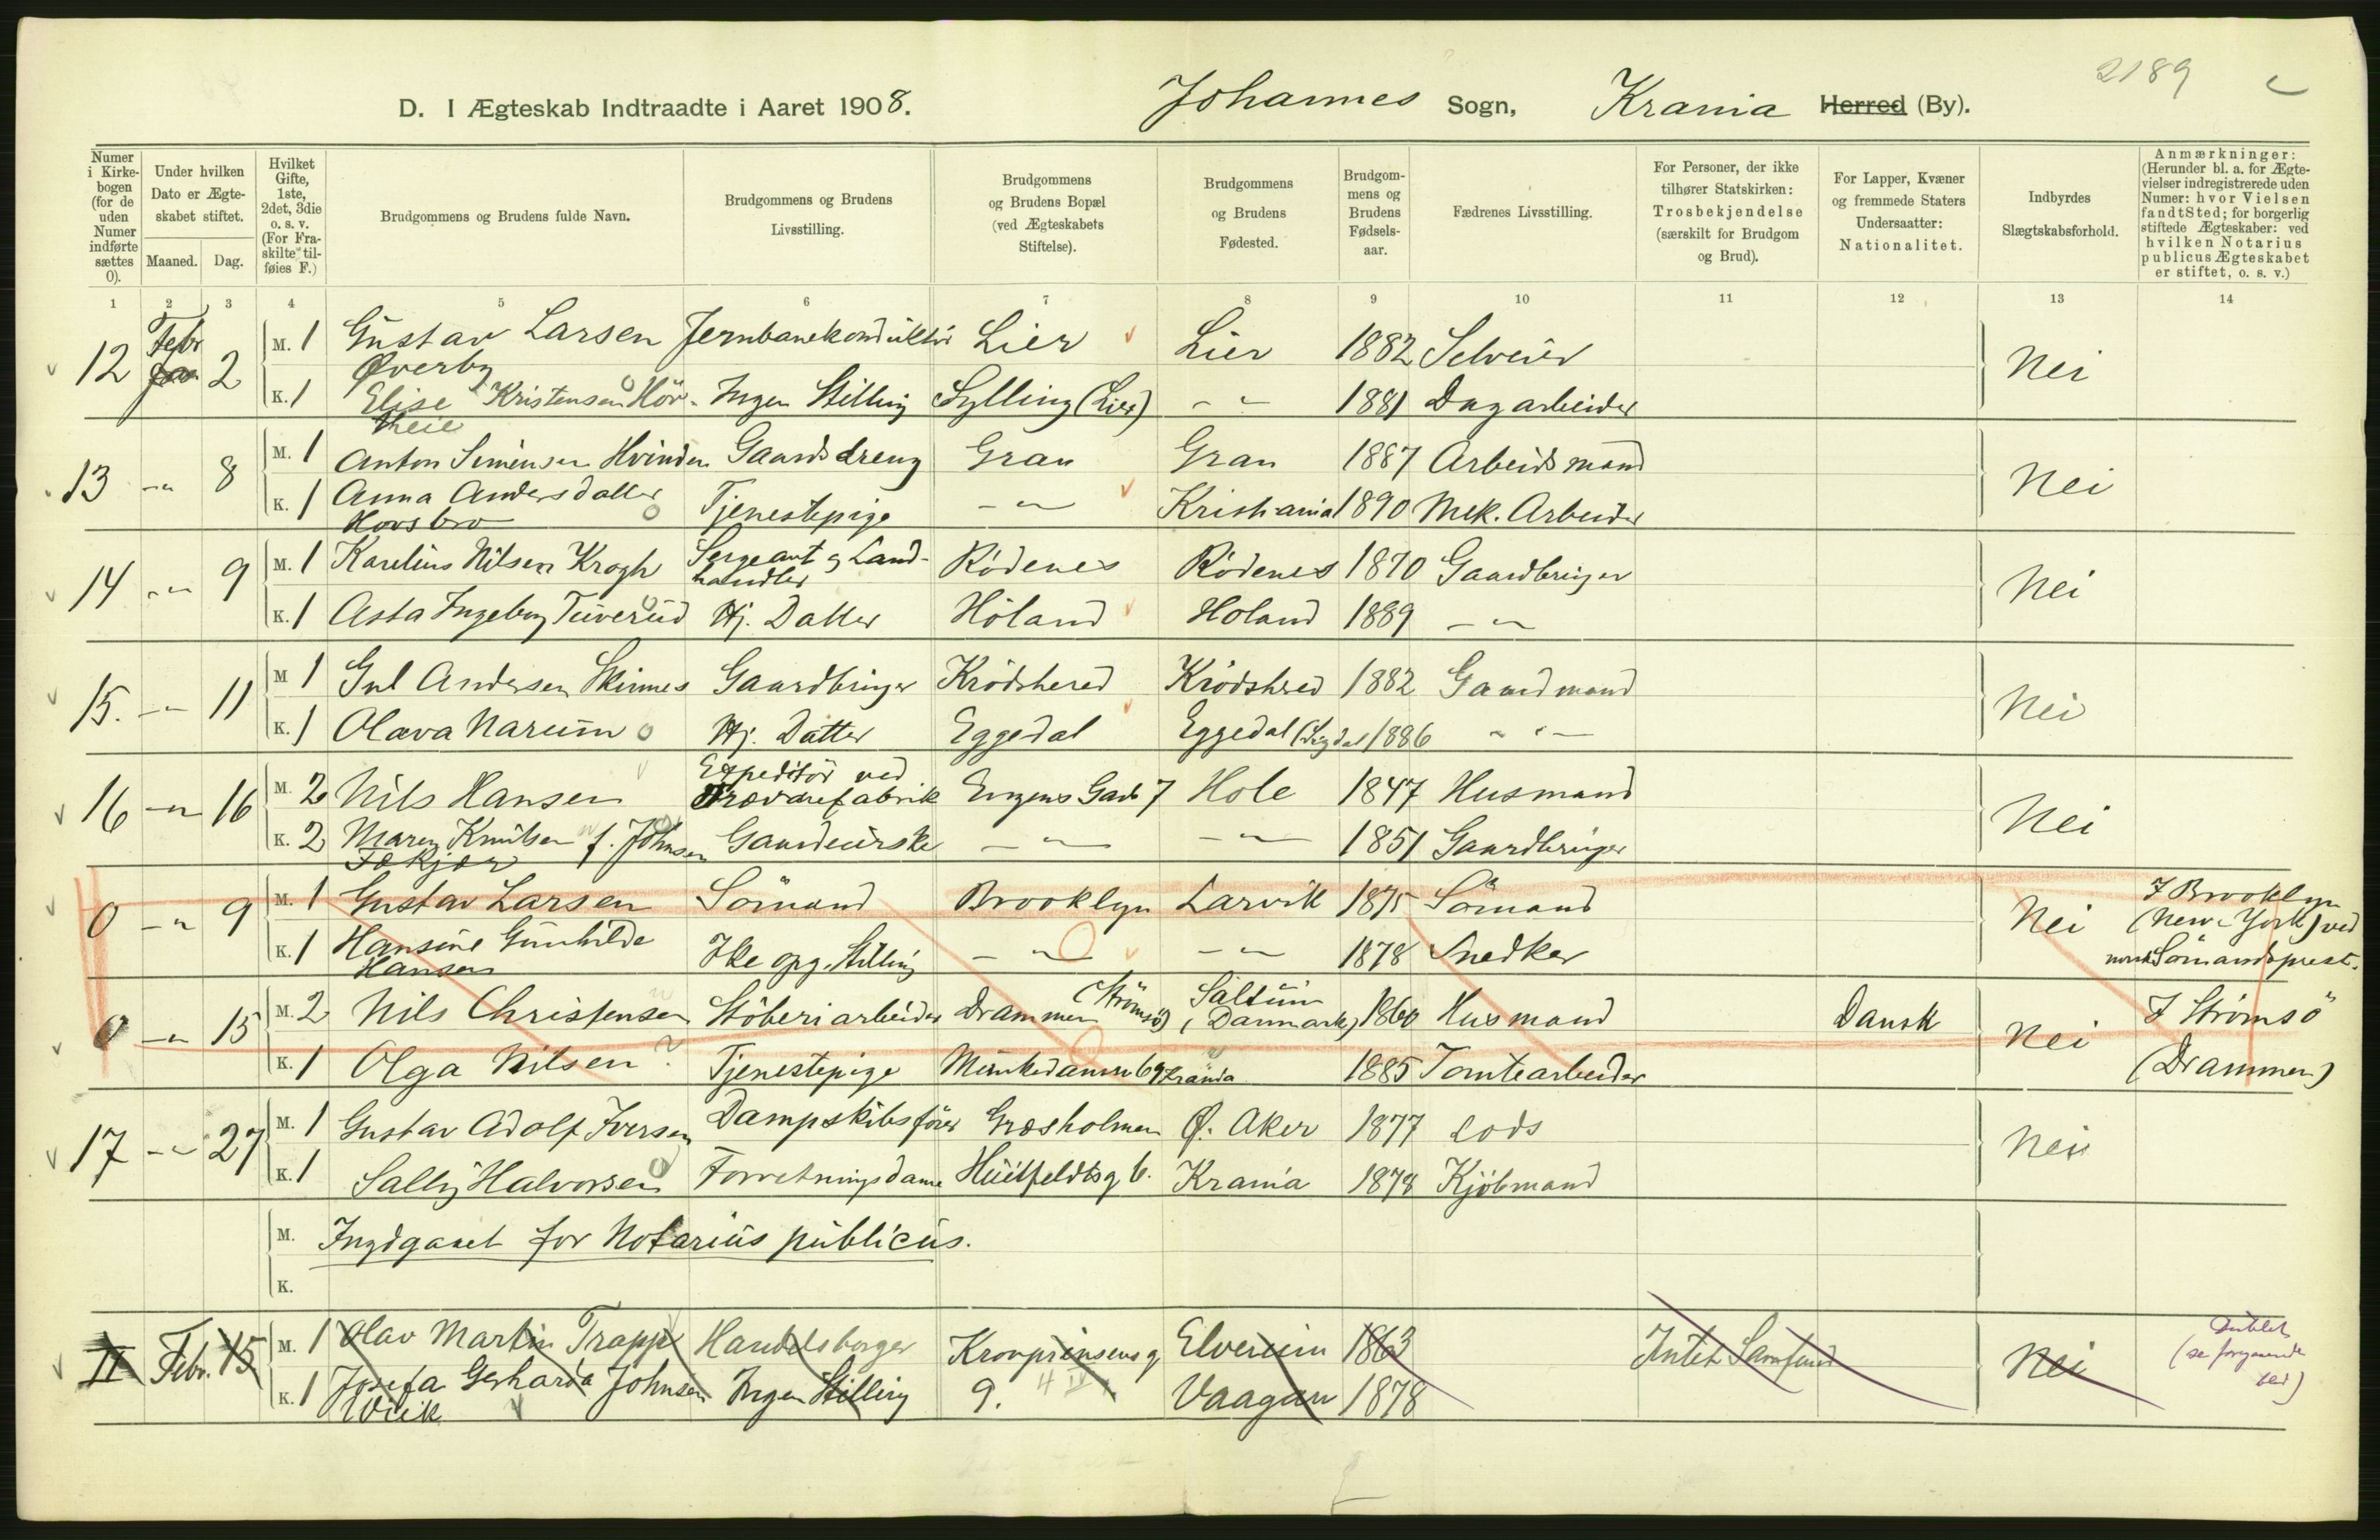 2189
D. I Ægteskab Indtraadte i Aaret 1908. Johannes Sogn, Krania Herred (By).
Numer i Kirkebogen (for de uden Numer indførte sættes 0).
Under hvilken Dato er Ægteskabet stiftet.
Maaned. Dag.
Hvilket Gifte, 1ste, 2det, 3die o. s. v. (For Fraskilte tilføies F.)
Brudgommens og Brudens fulde Navn.
Brudgommens og Brudens Livsstilling.
Brudgommens og Brudens Bopæl (ved Ægteskabets Stiftelse).
Brudgommens og Brudens Fødested.
Brudgommens og Brudens Fødselsaar.
Fædrenes Livsstilling.
For Personer, der ikke tilhører Statskirken: Trosbekjendelse (særskilt for Brudgom og Brud).
For Lapper, Kvæner og fremmede Staters Undersaatter: Nationalitet.
Indbyrdes Slægtskabsforhold.
Anmærkninger: (Herunder bl. a. for Ægtevielser indregistrerede uden Numer: hvor Vielsen fandt Sted; for borgerlig stiftede Ægteskaber: ved hvilken Notarius publicus Ægteskabet er stiftet, o. s. v.)
1 2 3 4 5 6 7 8 9 10 11 12 13 14
12 Febr Jan 2 M. 1 Gustav Larsen Øverby Jernbanekonduktör Lier Lier 1882 Selveier Nei
K. 1 Elise Kristensen Ingen Stilling Sylling (Lier) - " - 1881 Dagarbeider
13 - " - 8 M. 1 Anton Simensen Hvinden Gaardsdreng Gran Gran 1887 Arbeidsmand Nei
K. 1 Anna Andersdatter Hovsbro Tjenestepige - " - Kristiania 1890 Mek. Arbeider
14 - " - 9 M. 1 Karelius Nilsen Krogh Sergeant og Landhandler Rödenes Rödenes 1870 Gaardbruger Nei
K. 1 Asta Ingeborg Tuverud Hj. Datter Höland Höland 1889 - " -
15. - " - 11 M. 1 Gul Andersen Skinnes Gaardbruger Krödshered Krödshered 1882 Gaardmand Nei
K. 1 Olava Narum Hj. Datter Eggedal Eggedal (Sigdal) 1886 - " -
16 - " - 16 M. 2 Nils Hansen Expeditör ved Trævarefabrik Eugens Gade 7 Hole 1847 Husmand Nei
K. 2 Maren Knutsen f. Johnsen Gaardeierske - " - - " - 1851 Gaardbruger
0 - " - 9 M. 1 Gustav Larsen Sömand Brooklyn Larvik 1875 Sömand Nei I Brooklyn (New-York) ved norsk Sömandsprest.
K. 1 Hansine Gunhilde Hansen Ikke opg. Stilling - " - - " - 1878 Snedker
0 - " - 15 M. 2 Nils Christensen Stöberiarbeider Drammen (Strömsö) Saltum (Danmark) 1860 Husmand Dansk Nei I Strömsö (Drammen)
K. 1 Olga Nilsen ? Tjenestepige Munkedamsv 69 Krania 1885 Tomtearbeider
17 - " - 27 M. 1 Gustav Adolf Iversen Dampskibsförer Græsholmen Ø. Aker 1877 Lods Nei
K. 1 Sally Halvorsen Forretningsdame Huitfeldtsg 6. Krania 1878 Kjöbmand
M. Indgaaet for Notarius publicus.
K.
II Febr. 15 M. 1 Olav Martin Trapp Handelsborger Kronprinsensg 9. Elverum 1863 Intet Samfund Nei Dublet (se foregaaende
K. 1 Josefa Gerharda Johnsen Wiik Ingen Stilling Vaagan 1878